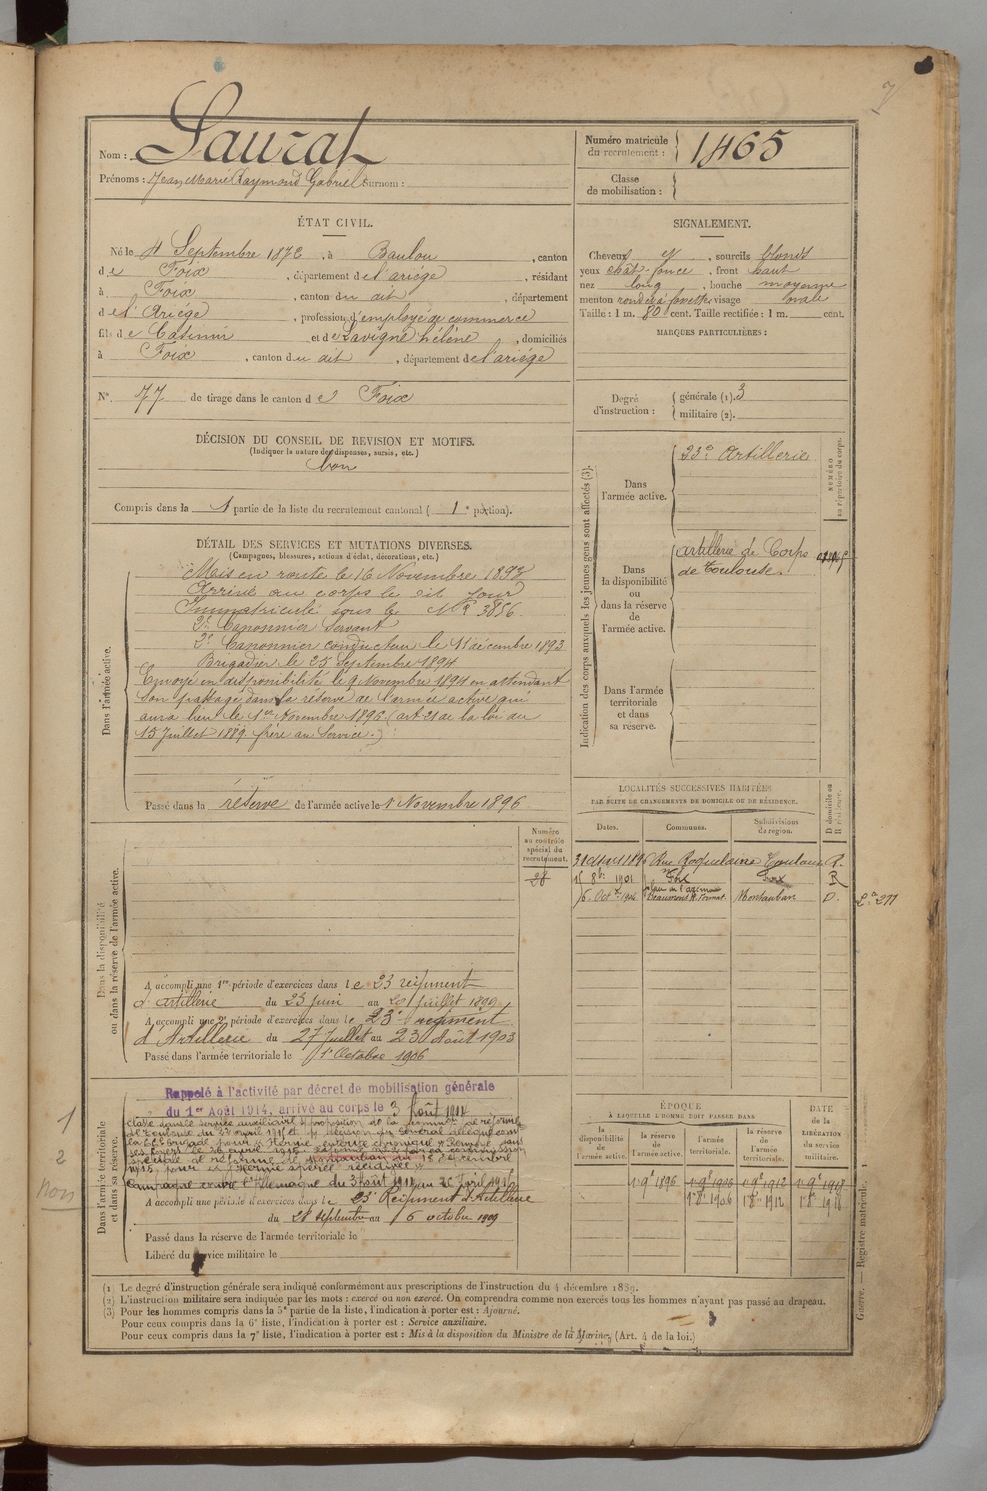 7
Nom : Sauzat
Numéro matricule du recrutement : 1465
Prénoms : Jean Marie Raymond Gabriel Surnom :
Classe de mobilisation :
ÉTAT CIVIL.
Né le 4 Septembre 1872, à Baulou, canton
de Foix, département de l'ariége, résidant
à Foix, canton du dit, département
de l'Ariége, profession d'employé de commerce
fils de Casimir et de Lavigne hélène, domiciliés
à Foix, canton du dit, département de l'ariége
N° 77 de tirage dans le canton de Foix
SIGNALEMENT.
Cheveux et, sourcils blonds
yeux chât. foncé, front haut
nez long, bouche moyenne
menton rond et à fossette visage ovale
Taille : 1 m. 80 cent. Taille rectifiée : 1 m. cent.
MARQUES PARTICULIÈRES :
Degré d'instruction :
générale (1). 3
militaire (2).
DÉCISION DU CONSEIL DE REVISION ET MOTIFS.
(Indiquer la nature des dispenses, sursis, etc.)
bon
Compris dans la 1 partie de la liste du recrutement cantonal ( 1e portion).
Indication des corps auxquels les jeunes gens sont affectés (3).
NUMÉRO au répertoire du corps.
Dans l'armée active.
23e Artillerie
Dans la disponibilité ou dans la réserve de l'armée active.
artillerie de Corps
de Toulouse.
Dans l'armée territoriale et dans sa réserve.
DÉTAIL DES SERVICES ET MUTATIONS DIVERSES.
(Campagnes, blessures, actions d'éclat, décorations, etc.)
Dans l'armée active.
Mis en route le 16 Novembre 1893
Arrivé au corps le dit jour
Immatriculé sous le No 3856
2e Canonnier servant
2e Canonnier conducteur le 11 décembre 1893
Brigadier le 25 Septembre 1894
Envoyé en disponibilité le 9 Novembre 1894 en attendant
son passage dans la réserve de l'armée active qui
aura lieu le 1er Novembre 1896 (art 21 de la loi du
15 Juillet 1889. frère au Service.)
Passé dans la réserve de l'armée active le 1 Novembre 1896
LOCALITÉS SUCCESSIVES HABITÉES
PAR SUITE DE CHANGEMENTS DE DOMICILE OU DE RÉSIDENCE.
D domicile ou R résidence.
Dates. Communes. Subdivisions de région.
31 Mars 1896 Rue Roquelaine Toulouse R.
15 8bre 1901 Foix Foix R
16 Octbre 1904 Beaumont Montauban D.
Numéro au contrôle spécial du recrutement.
28
Dans la disponibilité ou dans la réserve de l'armée active.
A accompli une 1re période d'exercices dans le 23 régiment
d'artillerie du 23 juin au 20 juillet 1899
A accompli une 2e période d'exercices dans le 23e régiment
d'Artillerie du 27 Juillet au 23 Août 1903
Passé dans l'armée territoriale le 1er Octobre 1906
1
2
Non
Dans l'armée territoriale et dans sa réserve.
Rappelé à l'activité par décret de mobilisation générale
du 1er Août 1914, arrivé au corps le 3 Août 1914
Campagne contre l'Allemagne du 3 Août 1914 au 26 Avril 1915
A accompli une période d'exercices dans le 23e Régiment d'Artillerie
du 28 septembre au 6 octobre 1909
Passé dans la réserve de l'armée territoriale le
Libéré du service militaire le
ÉPOQUE
À LAQUELLE L'HOMME DOIT PASSER DANS
DATE de la LIBÉRATION du service militaire.
la disponibilité de l'armée active. la réserve de l'armée active. l'armée territoriale. la réserve de l'armée territoriale.
1er 9bre 1896 1er 9bre 1906 1er 9bre 1912 1er 9bre 1918
1er 8bre 1906 1er 8bre 1912 1er 8bre 1918
(1) Le degré d'instruction générale sera indiqué conformément aux prescriptions de l'instruction du 4 décembre 1889.
(2) L'instruction militaire sera indiquée par les mots : exercé ou non exercé. On comprendra comme non exercés tous les hommes n'ayant pas passé au drapeau.
(3) Pour les hommes compris dans la 5e partie de la liste, l'indication à porter est : Ajourné.
Pour ceux compris dans la 6e liste, l'indication à porter est : Service auxiliaire.
Pour ceux compris dans la 7e liste, l'indication à porter est : Mis à la disposition du Ministre de la Marine. (Art. 4 de la loi.)
Guerre. — Registre matricule. 1